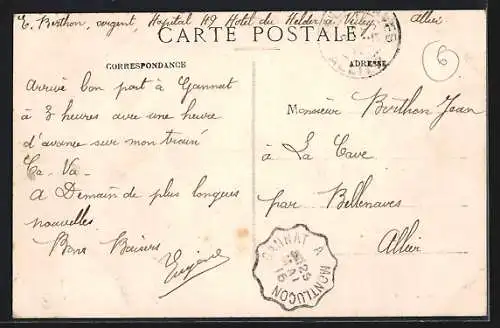 E. Berthon, sergent, Hôpital 49 Hotel du Helder à Vichy, Allier
CARTE POSTALE
CORRESPONDANCE
ADRESSE
6
Arrivé bon port à Gannat
à 3 heures avec une heure
d'avance sur mon train
Ça-Va-
A Demain de plus longues
nouvelles
Bons Baisers
Eugène
Monsieur Berthon Jean
à La Cave
par Bellenaves
Allier
GANNAT A MONTLUÇON
25
16